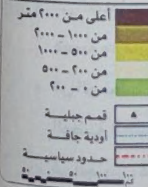 أعلى من ٢٠٠٠ متر
من ١٠٠٠ – ٢٠٠٠
من ٥٠٠ – ١٠٠٠
من ٢٠٠ – ٥٠٠
من ٠ – ٢٠٠
قمم جبلية
أودية جافة
حدود سياسية
٥٠ ٠ ٥٠ ١٠٠
كم